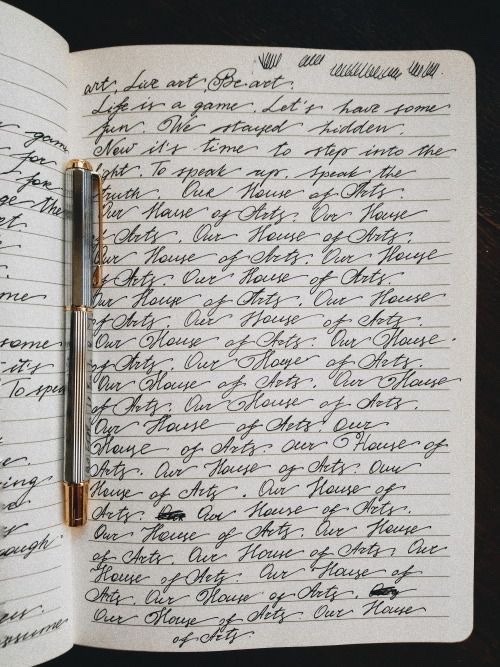 gam
for
for
ge the
et
me
some
it's
To spea
ing
ough.
ssume
art. Live art. Be art.
Life is a game. Let's have some
fun. We stayed hidden.
Now it's time to step into the
light. To speak up. Speak the
truth. Our House of Arts.
Our House of Arts. Our House
of Arts. Our House of Arts.
Our House of Arts. Our House
of Arts. Our House of Arts.
Our House of Arts. Our House
of Arts. Our House of Arts.
Our House of Arts. Our House.
of Arts. Our House of Arts.
Our House of Arts. Our House
of Arts. Our House of Arts.
Our House of Arts. Our
House of Arts. Our House of
Arts. Our House of Arts. Our
House of Arts. Our House of
Arts. Our House of Arts.
Our House of Arts. Our House
of Arts. Our House of Arts. Our
House of Arts. Our House of
Arts. Our House of Arts.
Our House of Arts. Our House
of Arts.